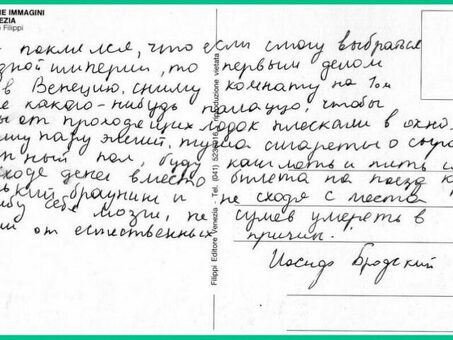 IE IMMAGINI
EZIA
Filippi
поклялся, что если смогу выбраться
зной империи, то первым делом
в Венецию, сниму комнату на 1ом
е какого-нибудь палаццо, чтобы
ы от проходящих лодок плескали в окно
шу пару элегий, туша сигареты о сыро
ный пол, буду кашлять и пить и
сходе денег вместо билета на поезд к
ький браунинг и не сходя с места
ибу себе мозги, не сумев умереть в
ии от естественных причин.
Иосиф Бродский
Filippi Editore Venezia - Tel. (041) riproduzione vietata